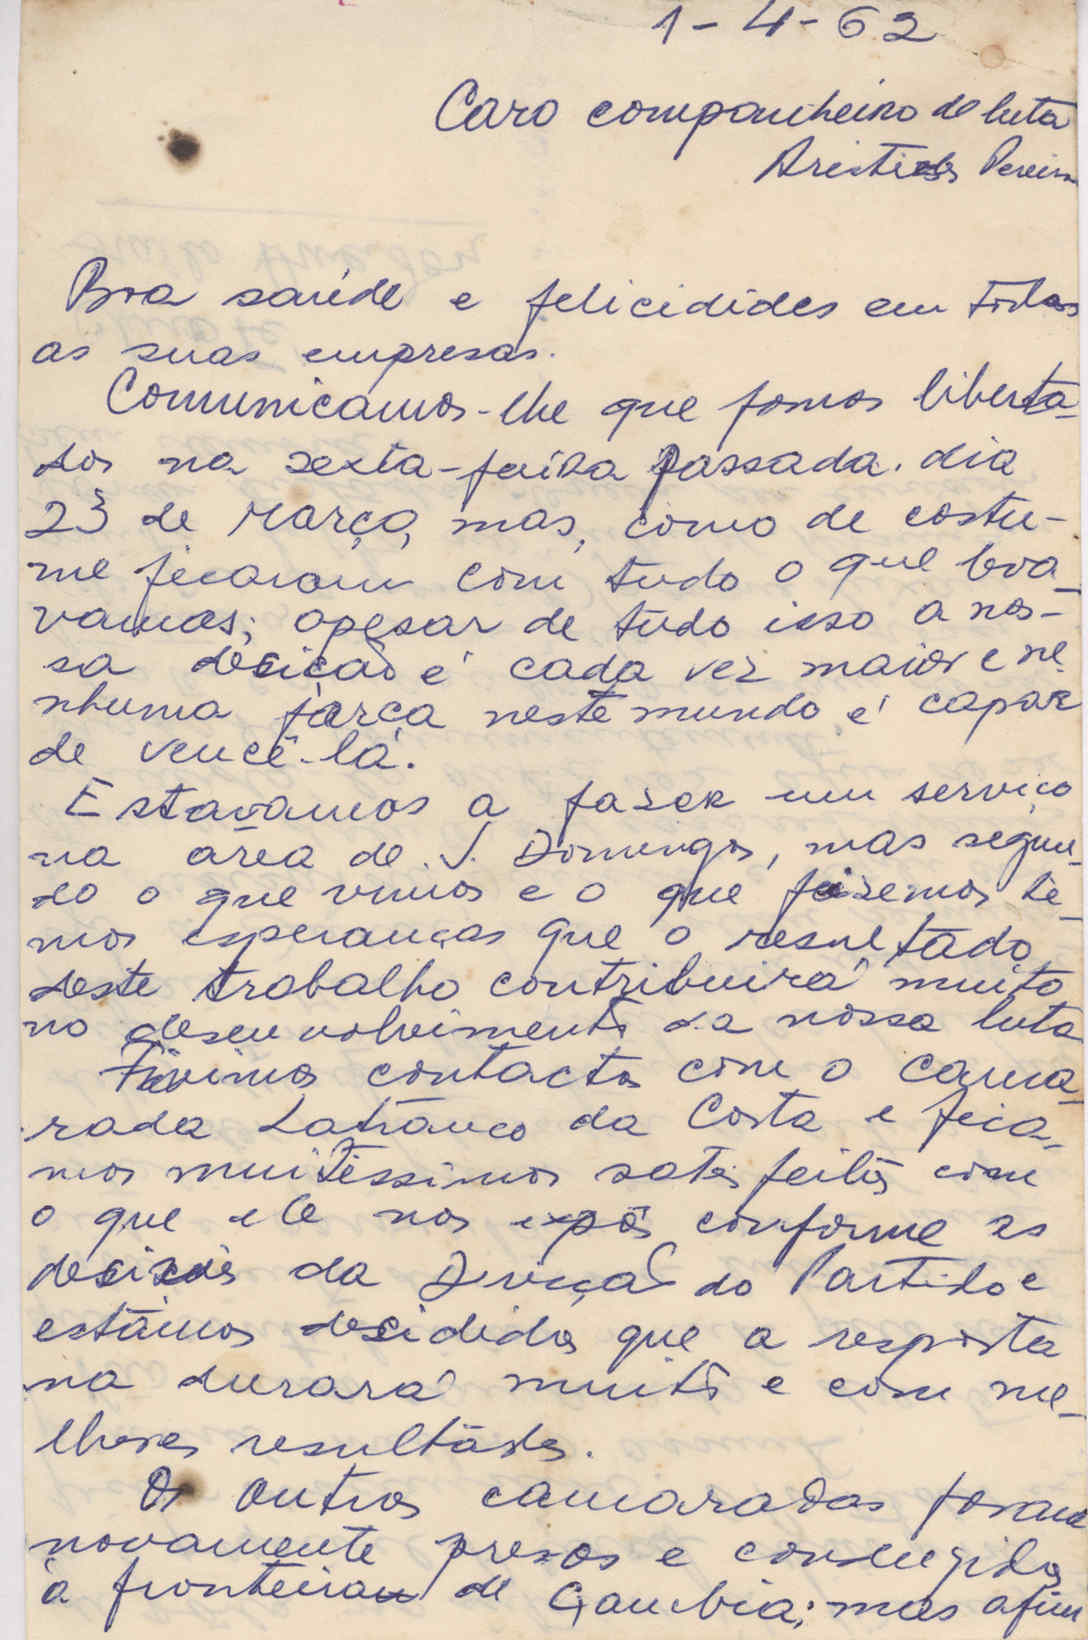 1-4-62
Caro companheiro de luta
Aristides Pereira
Boa saúde e felicidides em todas
as suas empresas.
Comunicamos-lhe que fomos liberta-
dos na sexta-feira passada. dia
23 de Março, mas, como de costu-
me ficaram com tudo o que leva-
vamos; apesar de tudo isso a nos-
sa decição é cada vez maior e ne-
nhuma farça neste mundo é capaz
de vencê-la.
Estavamos a fazer um serviço
na área de S. Domingos, mas segun-
do o que vimos e o que fizemos te-
mos esperanças que o resultado
deste trabalho contribuirá muito
no desenvolvimento da nossa luta
Tivimos contacto com o cama-
rada Lafranco da Costa e fica-
mos muitissimos satisfeitos com
o que ele nos expôs conforme as
decisões da Direcção do Partido e
estâmos decididos que a resposta
na durará muito e com me-
lhores resultádos.
Os outros camaradas foram
novamente presos e condugidos
à fronteira de Gambia; mas afim